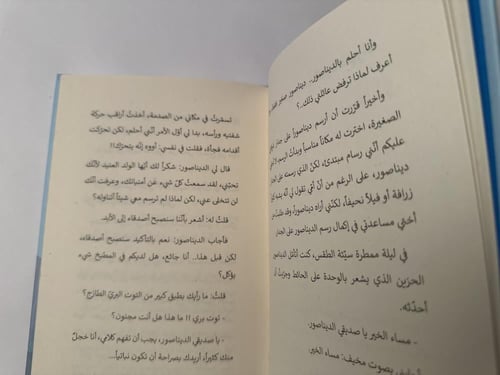 وأنا أحلم بالديناصور.. ديناصور صغير
أعرف لماذا ترفض عائلتي ذلك..؟
وأخيراً قرّرت أن أرسم ديناصوراً على جدار
الصغيرة، اخترت له مكاناً مناسباً وبدأت الرسم
عليكم أنّني رسام مبتدئ، لكنّ الذي رسمته
ديناصور، على الرغم من أنّ أمّي تقول لي أنّه يشبه
زرافة أو فيلاً نحيفاً، لكنّني أراه ديناصوراً، وقد طلبت من
أختي مساعدتي في إكمال رسم الديناصور على الجدار
في ليلة ممطرة سيّئة الطقس، كنت أتأمّل الديناصور
الحزين الذي يشعر بالوحدة على الحائط وجرّبتُ أن
أحدّثه.
- مساء الخير يا صديقي الديناصور.
بصوت مخيف: مساء الخير.
تسمّرتُ في مكاني من الصدمة، أخذتُ أراقب حركة
شفتيه ورأسه، بدا لي أوّل الأمر أنّني أحلم، لكن تحرّكت
أقدامه فجأة، فقلت في نفسي: أووه إنّه يتحرّك!!
قال لي الديناصور: شكراً لك أيّها الولد العنيد لأنّك
نحتّني، لقد سمعتُ كلّ شيء عن أمنياتك، وعرفت أنّك
لن تتخلى عني، لكن لماذا لم ترسم معي شيئاً أتناوله؟
قلتُ له: أشعر بأنّنا سنصبح أصدقاء إلى الأبد.
فأجاب الديناصور: نعم بالتأكيد سنصبح أصدقاء،
لكن قبل هذا.. أنا جائع، هل لديكم في المطبخ شيء
يؤكل؟
قلتُ: ما رأيك بطبق كبير من التوت البريّ الطازج؟
- توت بري !! ما هذا هل أنت مجنون؟
- يا صديقي الديناصور، يجب أن تفهم كلامي، أنا خجلٌ
منك كثيراً، أريدك بصراحة أن تكون نباتياً...